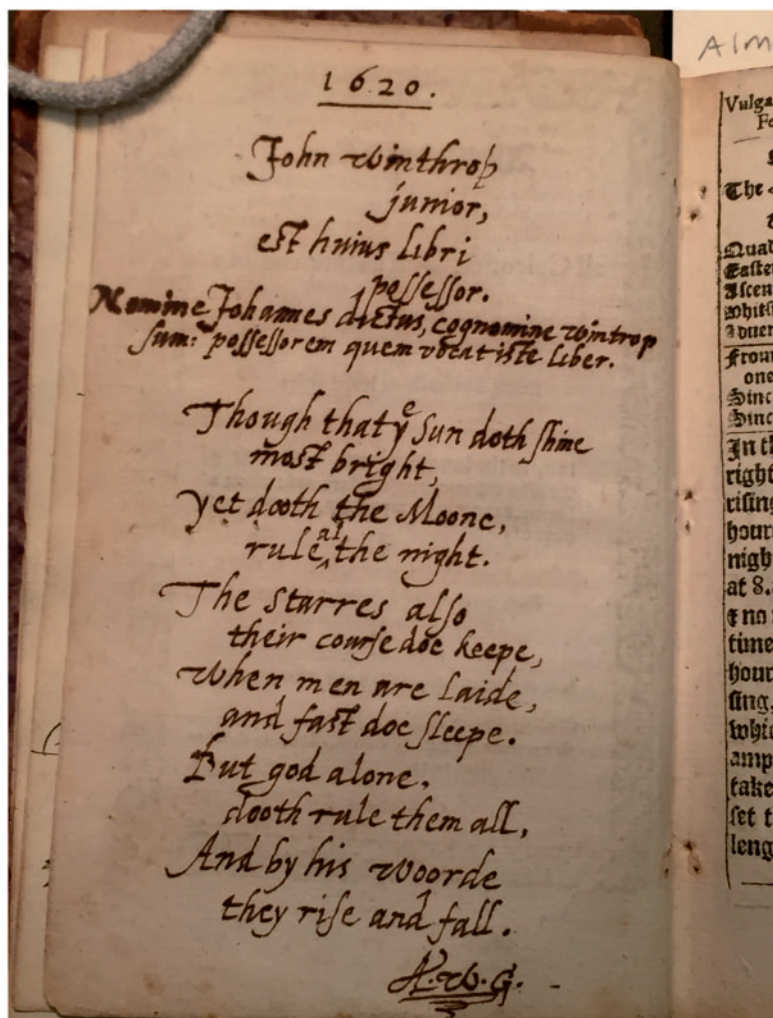 1620.
John Winthrop
junior,
est huius libri
possessor.
Nomine Johannes dictus, cognomine Wintrop
sum: possessorem quem vocat iste liber.
Though that yᵉ Sun doth shine
most bright,
yet dooth the Moone,
rule al the night.
The starres also
their course doe keepe,
When men are laide,
and fast doe sleepe.
But god alone,
dooth rule them all,
And by his woorde
they rise and fall.
A.W.G.
Alm
Vulga
Fe
The
Quad
Easte
Ascen
Whits
Aduen
From
one
Sinc
Sinc
In th
right
rising
hour
nigh
at 8.
& no
time
hour
sing,
whic
amp
take
set t
leng